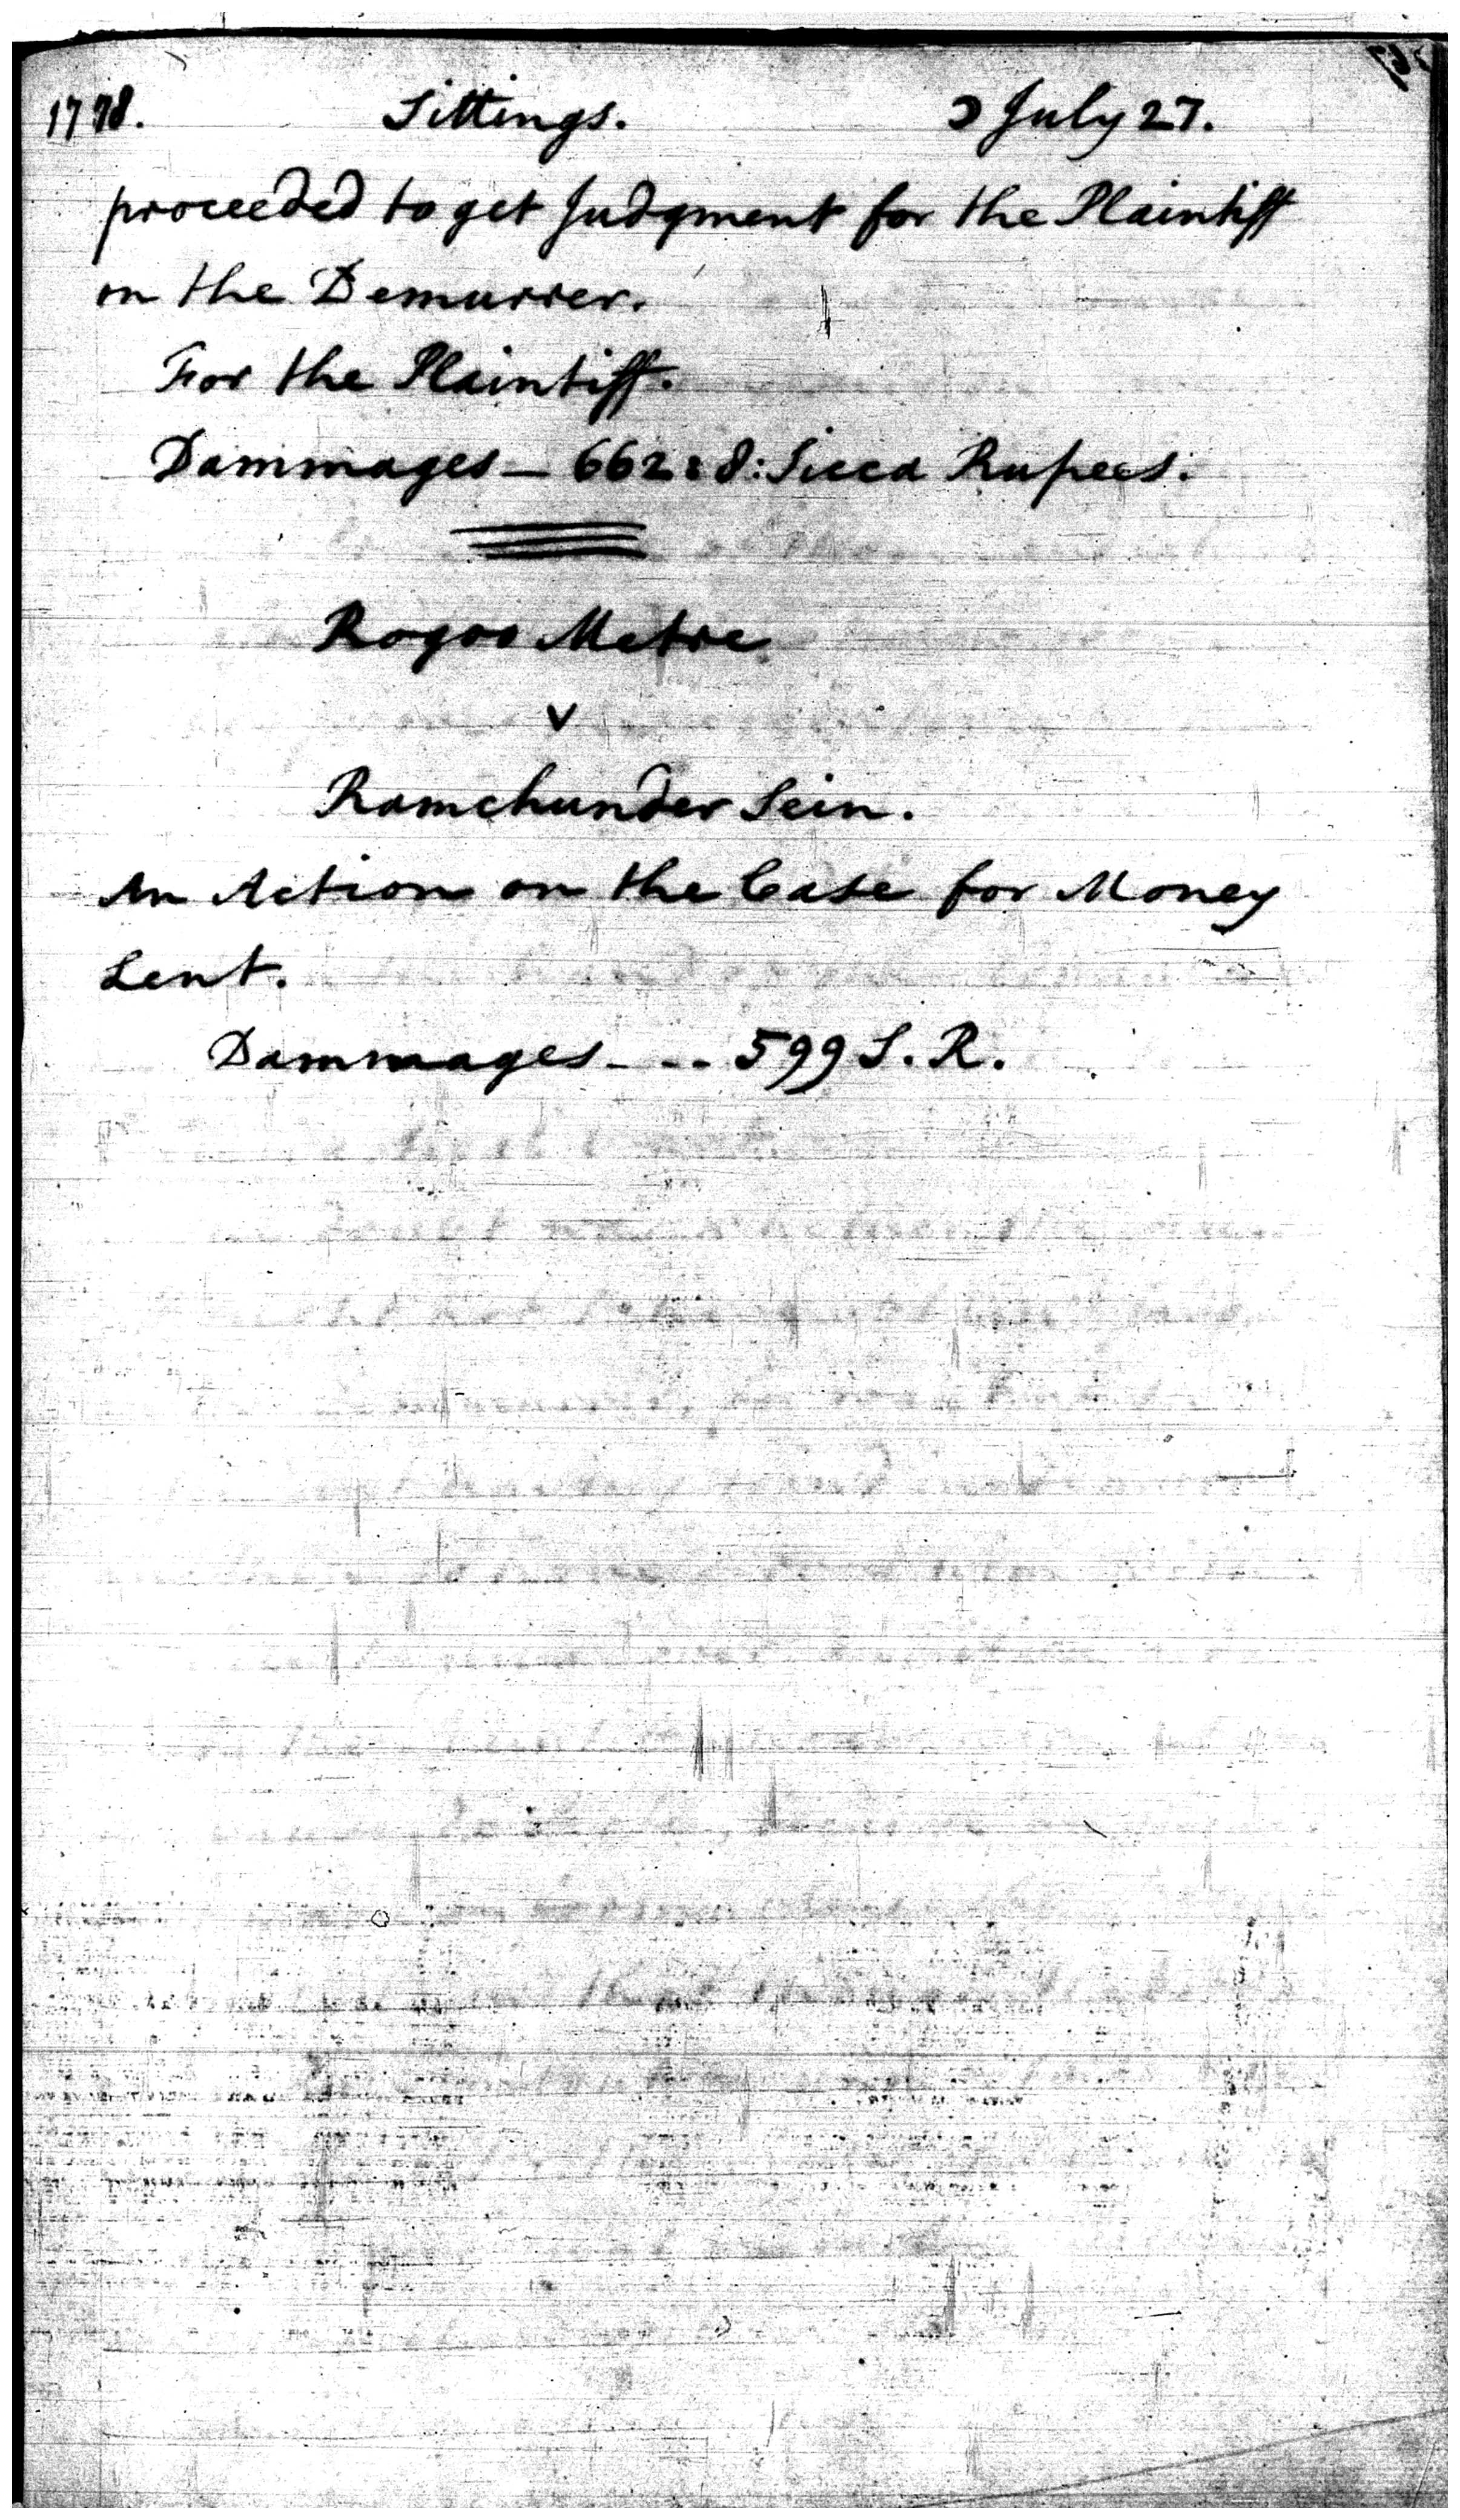 1778. Sittings. ☽ July 27.
proceeded to get Judgment for the Plaintiff
on the Demurrer.
For the Plaintiff.
Dammages — 662 : 8 : Sicca Rupees.
Rogoo Metre
v
Ramchunder Sein.
An Action on the Case for Money
Lent.
Dammages - - - 599 S. R.